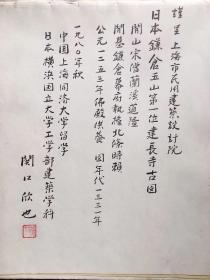 謹呈 上海市民用建築設計院
日本鎌倉五山第一位建長寺古図
開山宋僧蘭渓道隆
開基鎌倉幕府執権北條時頼
公元一二五三年佛殿供養 図年代一三三一年
一九八〇年秋
中国上海同済大学留学
日本横浜国立大学工学部建築学科
関口欣也